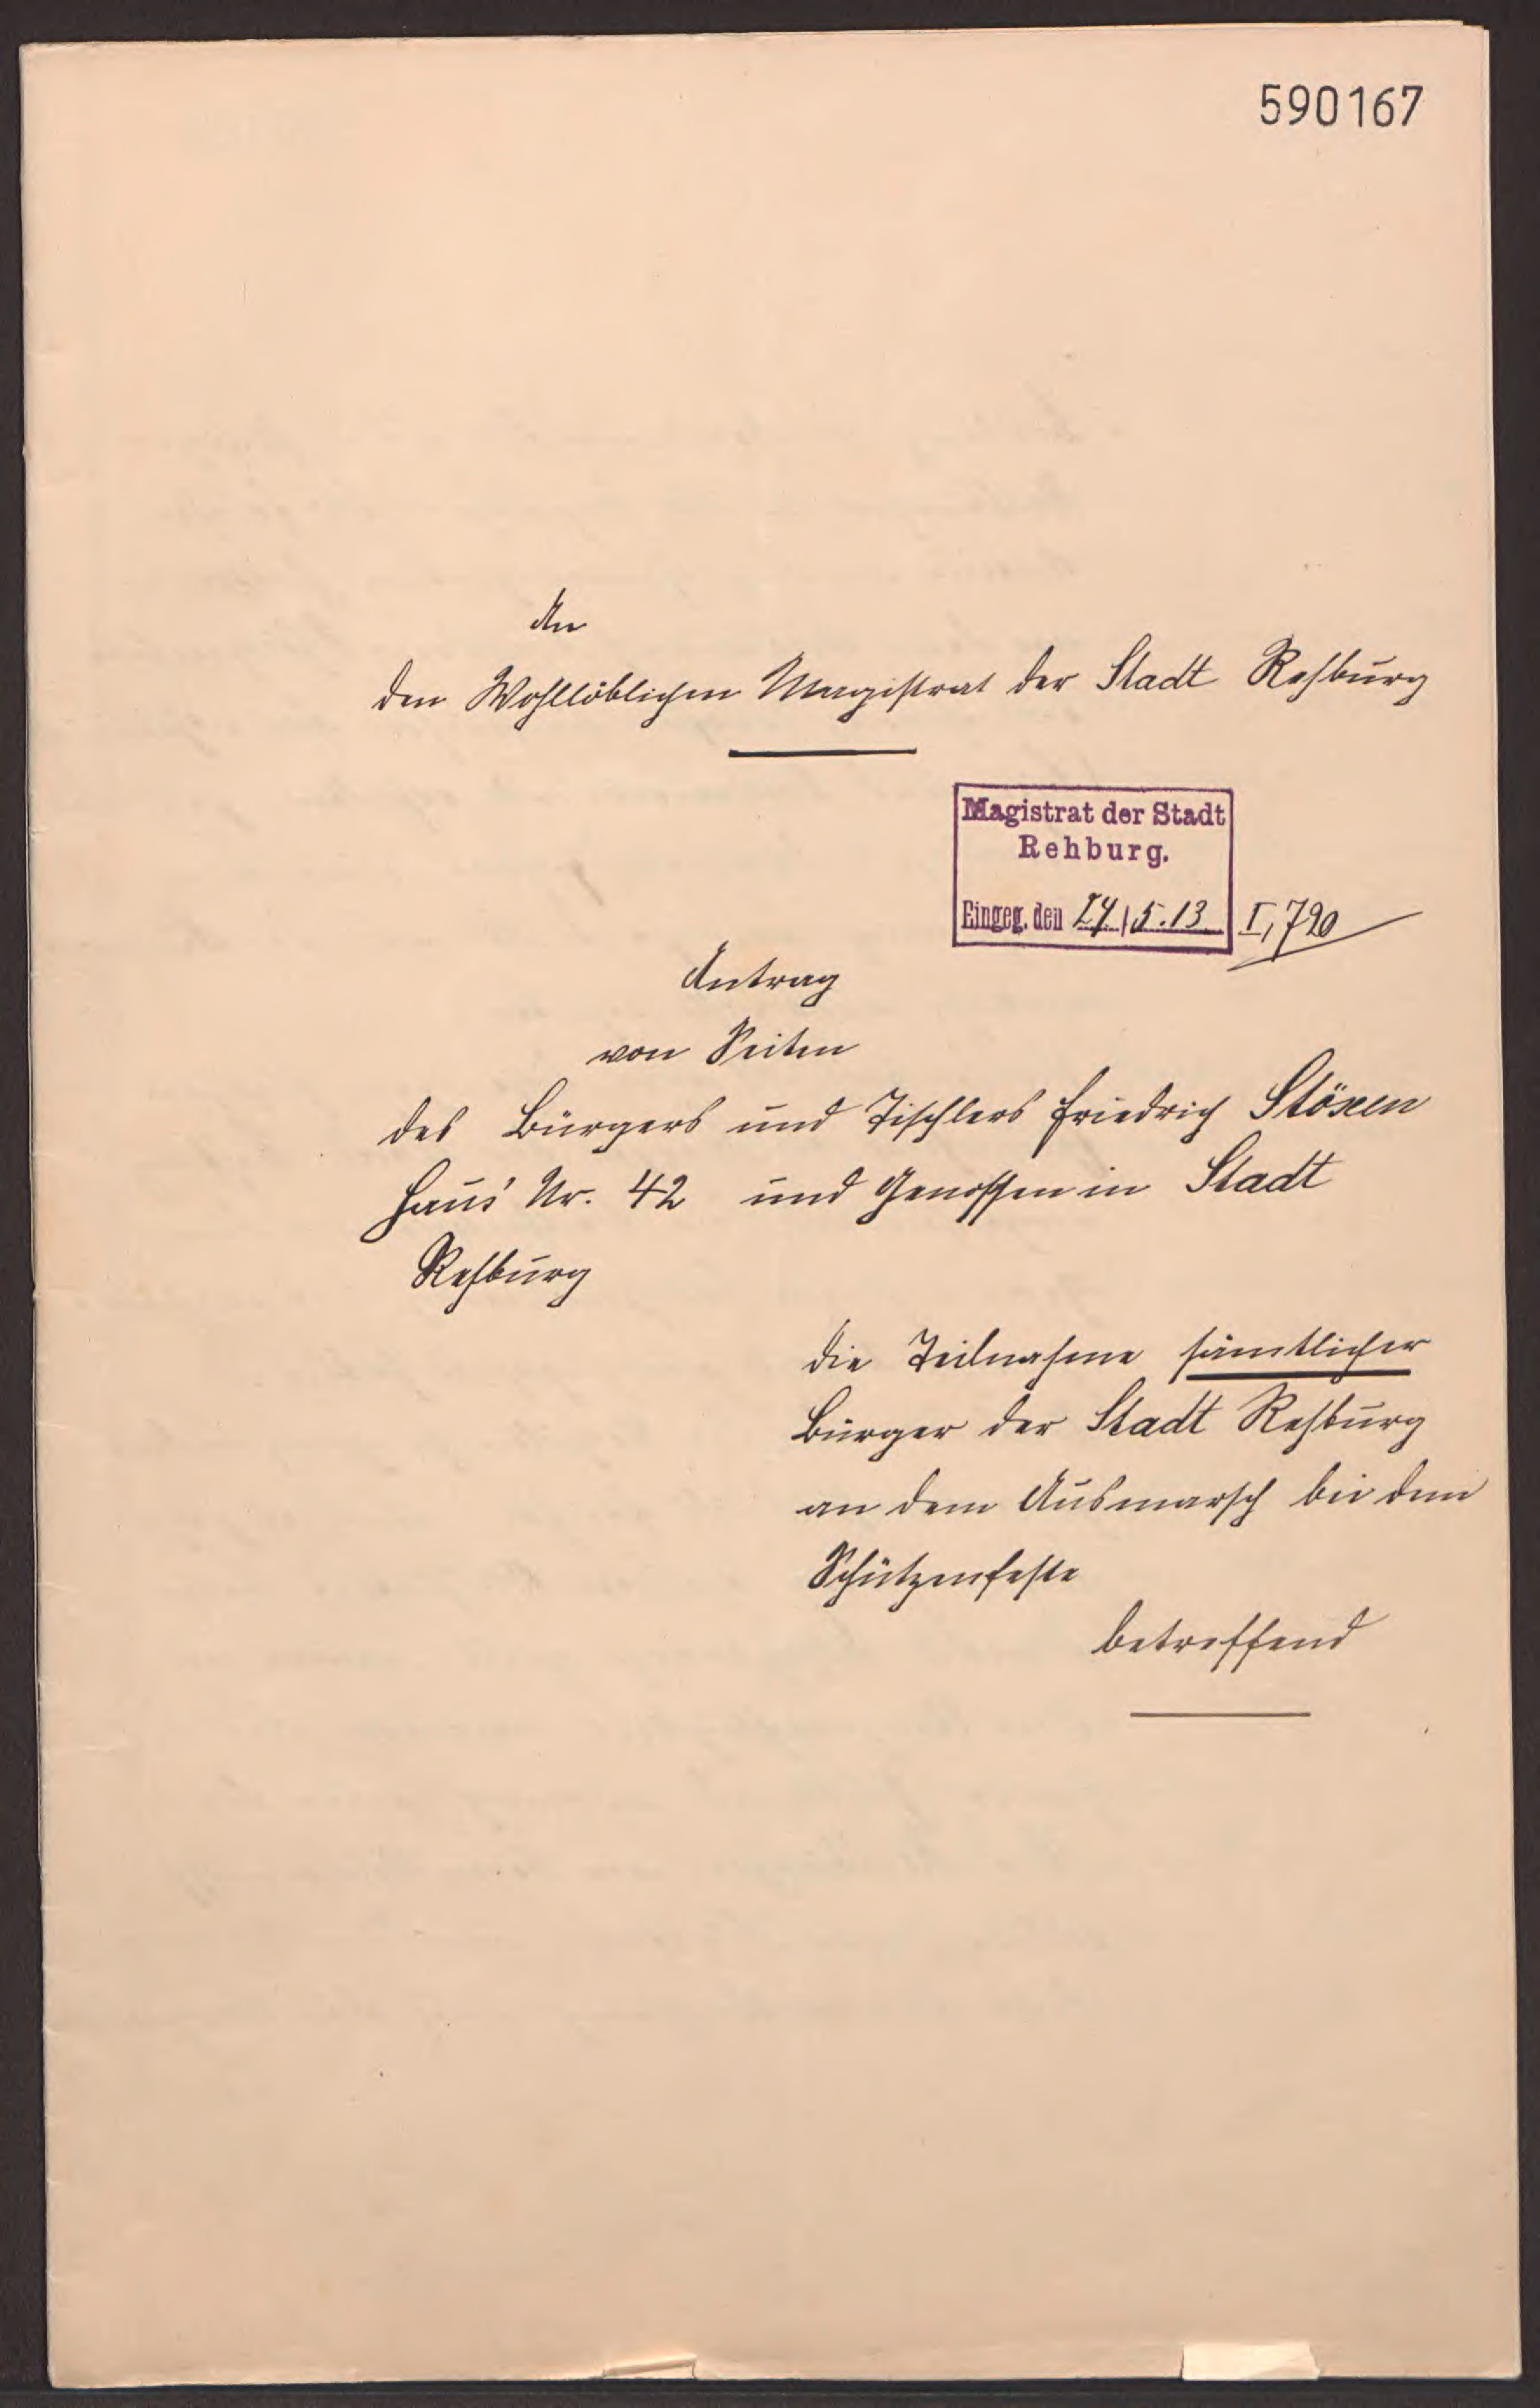 590167
An
den Wohllöblichen Magistrat der Stadt Rehburg
Magistrat der Stadt
Rehburg.
Eingeg. den 24/5.13 I, 720
Antrag
von Seiten
des Bürgers und Tischlers Friedrich
Haus Nr. 42 und Genossen in Stadt
Rehburg
die Teilnahme sämtlicher
Bürger der Stadt Rehburg
an dem Ausmarsch bei dem
Schützenfeste
betreffend